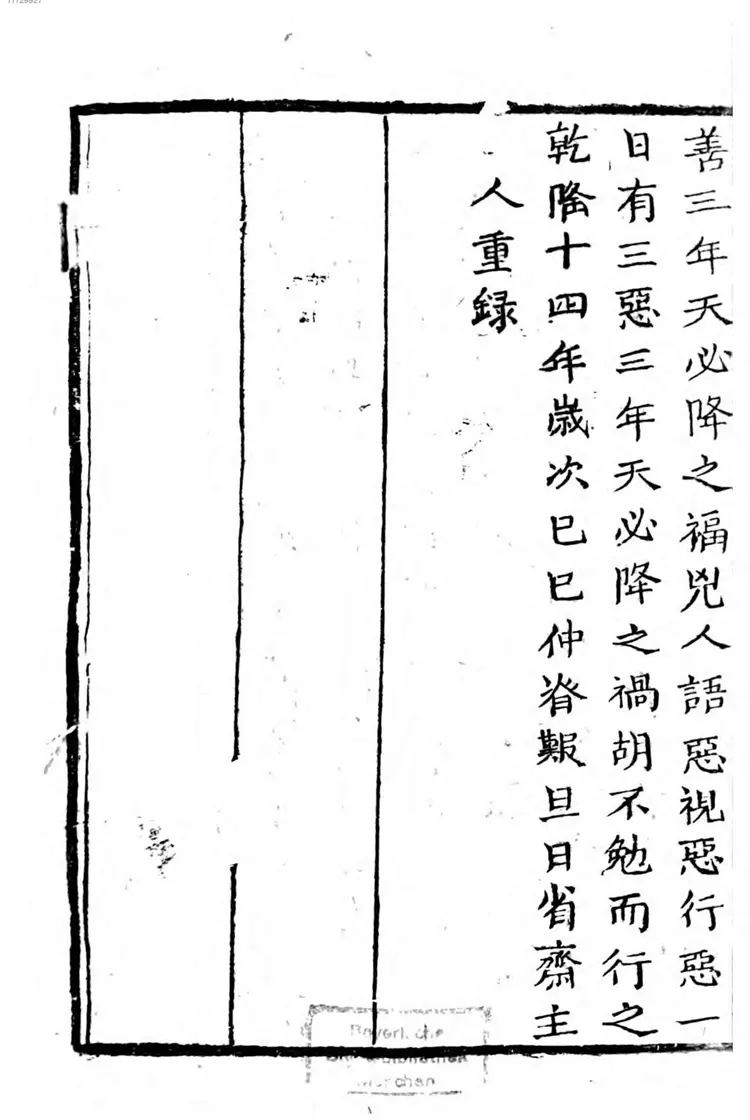 善三年天必降之福兇人語惡視惡行惡一
日有三惡三年天必降之禍胡不勉而行之
乾隆十四年歲次己巳仲春穀旦日省齋主
人重録
München